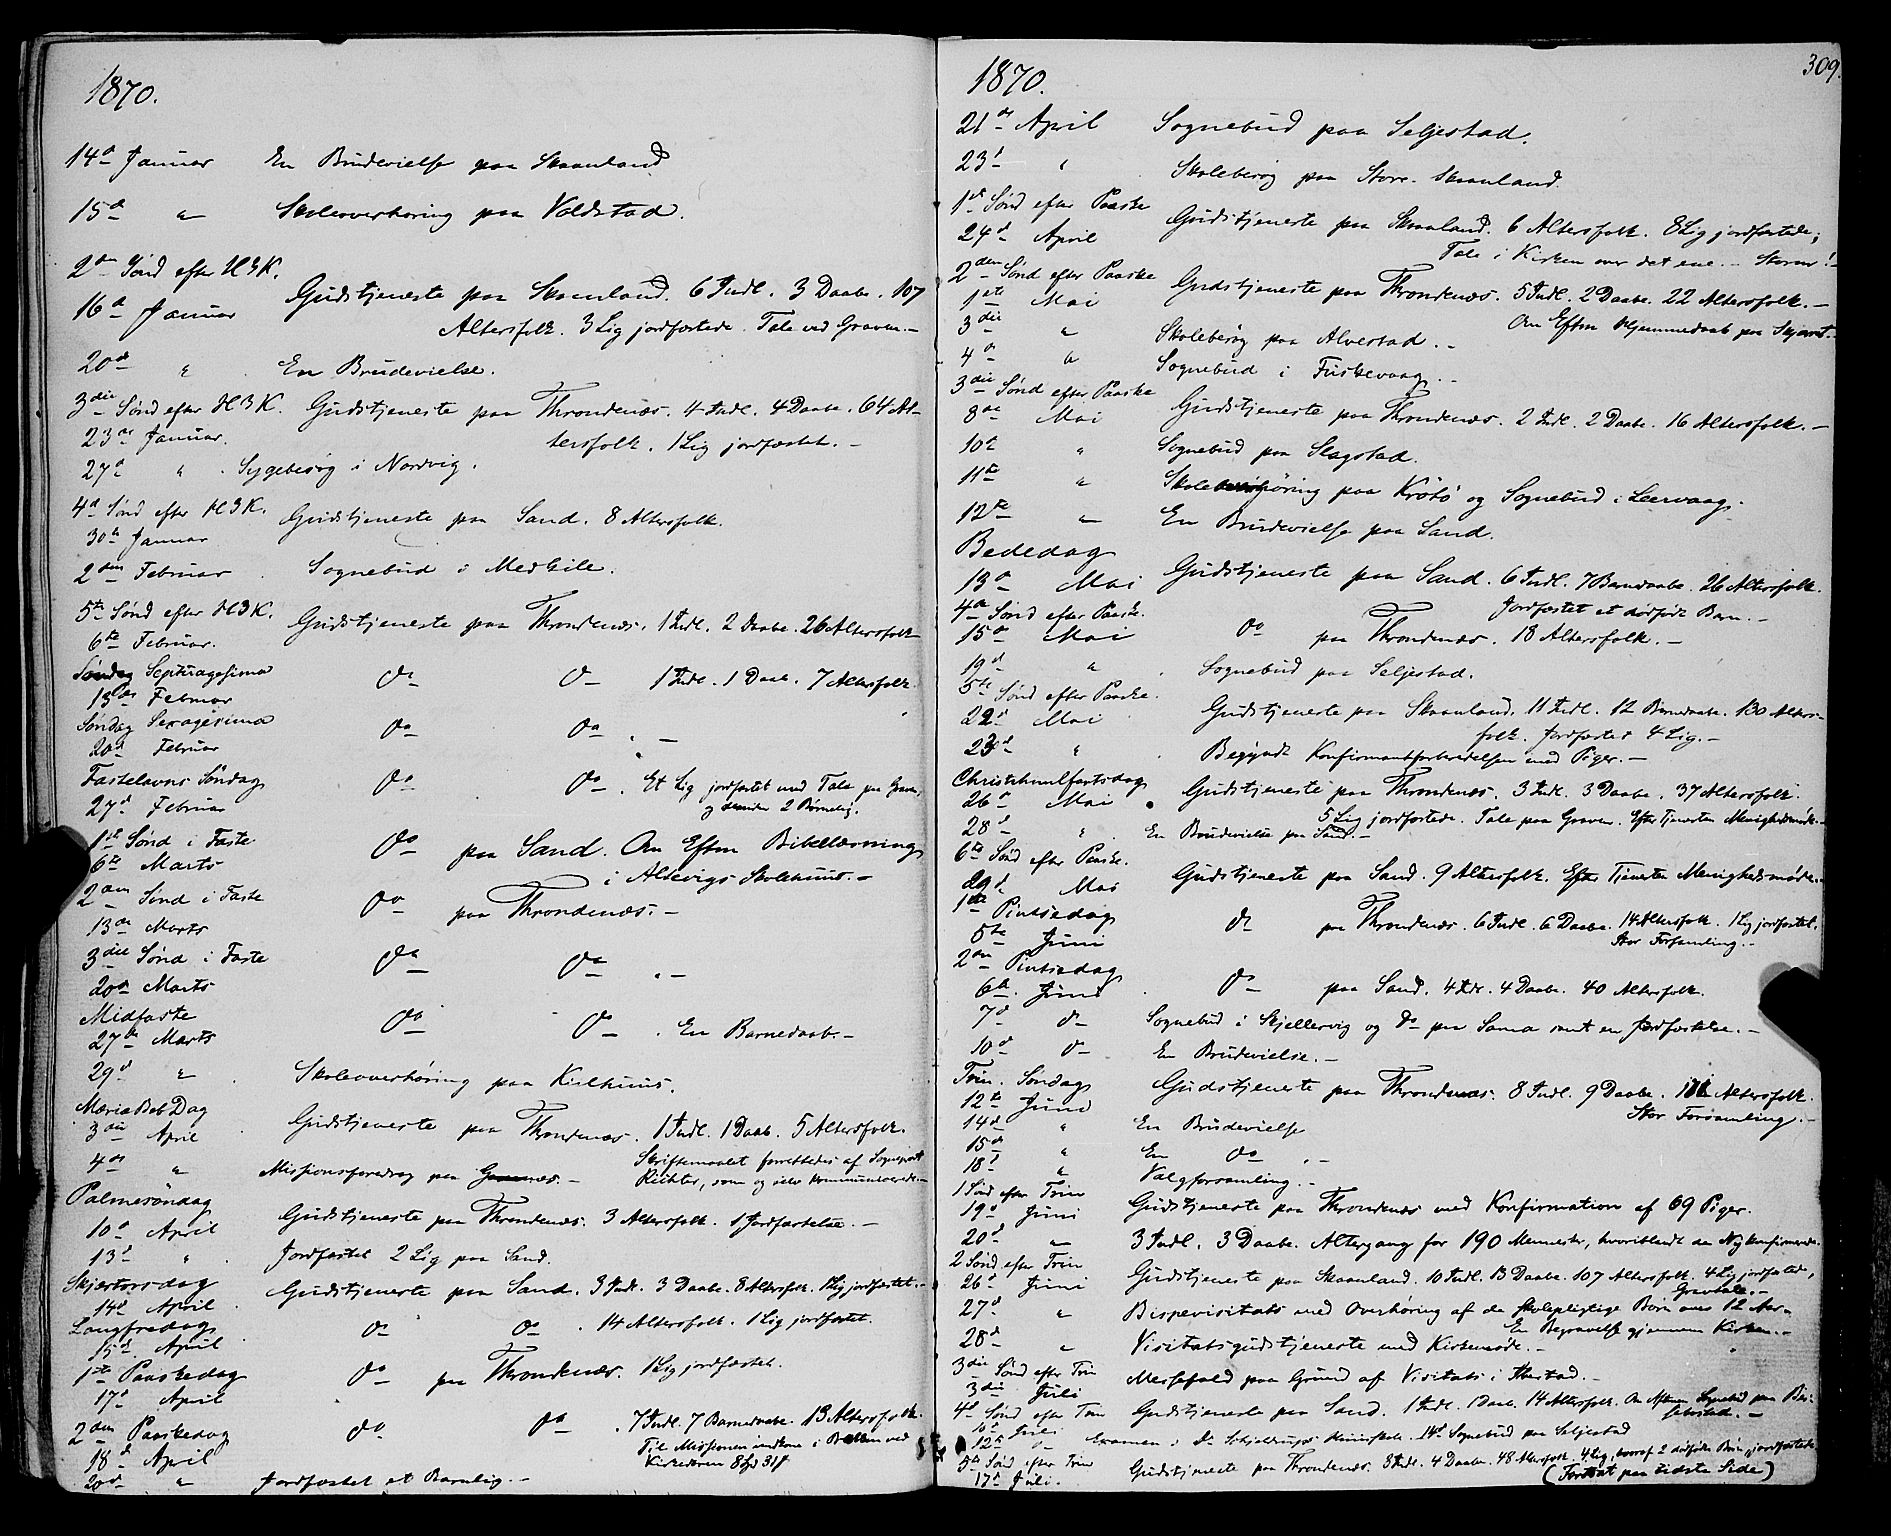 1870.
14d Januar En Brudevielse paa Skaanland
15d " Skoleoverhøring paa Voldstad.
2den Sønd efter H3K.
16d Januar Gudstjeneste paa Skaanland. 6 Indl. 3 Daabe. 107
Altersfolk. 3 Lig jordfæstede. Tale ved Graven.-
20de " En Brudevielse.
3die Sønd efter H3K. Gudstjeneste paa Throndenæs. 4 Indl. 4 Daabe. 64 Al-
23de Januar. tersfolk. 1 Lig jordfæstet.-
27d " Sygebesøg i Nordvig.
4d Sønd efter H3K. Gudstjeneste paa Sand. 8 Altersfolk.
30te Januar
2den Februar Sognebud i Medkile.
5te Sønd efter H3K. Gudstjeneste paa Throndenæs. 1 Indl. 2 Daabe. 26 Altersfolk
6te Februar.
Søndag Septuagesima do do 1 Indl. 1 Daab. 7 Altersfolk.
13de Februar
Søndag Sexagesima do do . -
20d Februar
Fastelavns Søndag do do . Et Lig jordfæstet med Tale paa Graven,
27d Februar og desuden 2 Børnelig.
1ste Sønd i Faste do paa Sand. Om Eftm Bibellæsning
6te Marts i Aldevigs Skolehuus.-
2den Sønd i Faste do paa Throndenæs.-
13de Marts
3die Sønd i Faste do do . -
20de Marts
Midfaste do do . En Barnedaab.-
27de Marts
29d " Skoleoverhøring paa Kilhuus.
Mariæ Beb Dag Gudstjeneste paa Throndenæs. 1 Indl. 1 Daab. 5 Altersfolk.
3die April
Skriftemaalet forrettedes af Sogneprst
4de " Missionsforedrag paa Grønnæs.- Richter, som og selv kommunicerede.-
Palmesøndag
10d April Gudstjeneste paa Throndenæs. 3 Altersfolk. 1 Jordfæstelse.-
13d " Jordfæstet 2 Lig paa Sand.
Skjertorsdag Gudstjeneste paa Sand. 3 Indl. 3 Daabe. 8 Altersfolk. 1 Lig jordfæstet.-
14d April
Langfredag do do . 14 Altersfolk. 1 Lig jordfæstet.
15d. April
1ste Paaskedag do paa Throndenæs. 1 Lig jordfæstet.
17d April
2den Paaskedag do do . 7 Indl. 7 Barnedaabe. 13 Altersfolk.
18d April Til Missionen indkom i Bøssen ved
Kirkedøren 8 Spd 31 s
20d " Jordfæstet et Barnelig.-
309.
1870.
21de April Sognebud paa Seljestad.
23d " Skolebesøg paa Store-Skaanland.
1ste Sønd efter Paaske Gudstjeneste paa Skaanland. 6 Altersfolk. 8 Lig jordfæstede;
24d April Tale i Kirken over det ene.- Storm!-
2den Sønd efter Paaske Gudstjeneste paa Throndenæs. 5 Indl. 2 Daabe. 22 Altersfolk.-
1st Mai Om Eftm Hjemmedaab paa
3die " Skolebesøg paa Alvestad.-
4de " Sognebud i Fuskevaag.-
3die Sønd efter Paaske Gudstjeneste paa Throndenæs. 2 Indl. 2 Daabe. 16 Altersfolk.-
8de Mai
10d " Sognebud paa Slagstad.
11te " Skoleoverhøring paa Krøtø og Sognebud i Leervaag.
12te " En Brudevielse paa Sand.
Bededag Gudstjeneste paa Sand. 6 Indl. 7 Barnedaabe. 26 Altersfolk.
13d Mai Jordfæstet et dødfødt Barn.-
4de Sønd efter Paaske. do paa Throndenæs. 18 Altersfolk.-
15de Mai
19d " Sognebud paa Seljestad.
5te Sønd efter Paaske. Gudstjeneste paa Skaanland. 11 Indl. 12 Barnedaabe. 130 Alters-
22d Mai folk. Jordfæstet 4 Lig.-
23d " Begyndt Konfirmantforberedelsen med Piger.-
Christihimmelfartsdag Gudstjeneste paa Throndenæs. 3 Indl. 3 Daabe. 37 Altersfolk.
26d Mai 5 Lig jordfæstede. Tale paa Graven. Efter Tjenesten Menighedsmøde.-
28d " En Brudevielse paa Sand.-
6te Sønd efter Paaske. Gudstjeneste paa Sand. 9 Altersfolk. Efter Tjenesten Menighedsmøde.-
29d Mai
1ste Pintsedag do paa Throndenæs. 6 Indl. 6 Daabe. 14 Altersfolk. 1 Lig jordfæstet.
5te Juni Stor Forsamling.-
2den Pintsedag do paa Sand. 4 Indl. 4 Daabe. 40 Altersfolk.
6te. Juni
7d do Sognebud i Skjellesvig og do paa Sama samt en Jordfæstelse.-
10d do En Brudevielse.-
Trin. Søndag Gudstjeneste paa Throndenæs. 8 Indl. 9 Daabe. 111 Altersfolk.
12te Juni Stor Forsamling.-
14d " En Brudevielse
15d " En do . -
18d " Valgforsamling.-
1 Sønd efter Trin Gudstjeneste paa Throndenæs med Konfirmation af 69 Piger.
19d Juni
20d " 3 Indl. 3 Daabe. Altergang for 190 Mennesker, hvoriblandt de Nykonfirmerede.
2 Sønd efter Trin Gudstjeneste paa Skaanland. 10 Indl. 13 Daabe. 107 Altersfolk. 4 Lig jordfæstede,
26d Juni Gravtale.-
27d " Bispevisitats med Overhøring af de skolepligtige Børn over 12 Aar.-
En Begravelse gjennem Kirken.-
28d " Visitatsgudstjeneste med Kirkemøde.-
3die Sønd efter Trin Messefald paa Grund af Visitats i Ibestad.-
3die Juli
4d Sønd efter Trin Gudstjeneste paa Sand. 1 Indl. 1 Daab. 14 Altersfolk. Om Aftenen Sognebud paa
10d Juli
12te do Examen i 14d Sognebud paa Seljestad
5te Sønd efter Trin Gudstjeneste paa Throndenæs. 3 Indl. 4 Daabe. 48 Altersfolk. 4 Lig, hvoraf 2 dødfødte Børn, jordfæstede
17d Juli. (Fortsat paa sidste Side)